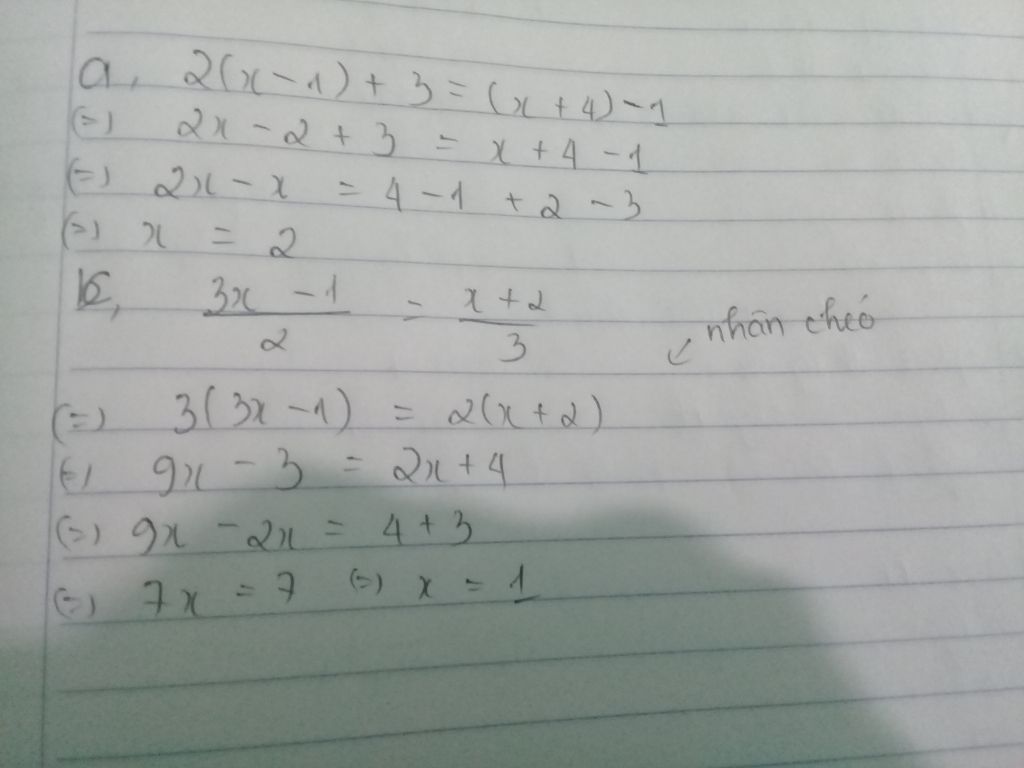 a, 2(x - 1) + 3 = (x + 4) - 1
(=) 2x - 2 + 3 = x + 4 - 1
(=) 2x - x = 4 - 1 + 2 - 3
(=) x = 2
b, (3x - 1)/2 = (x + 2)/3
nhân chéo
(=) 3(3x - 1) = 2(x + 2)
(=) 9x - 3 = 2x + 4
(=) 9x - 2x = 4 + 3
(=) 7x = 7 (=) x = 1